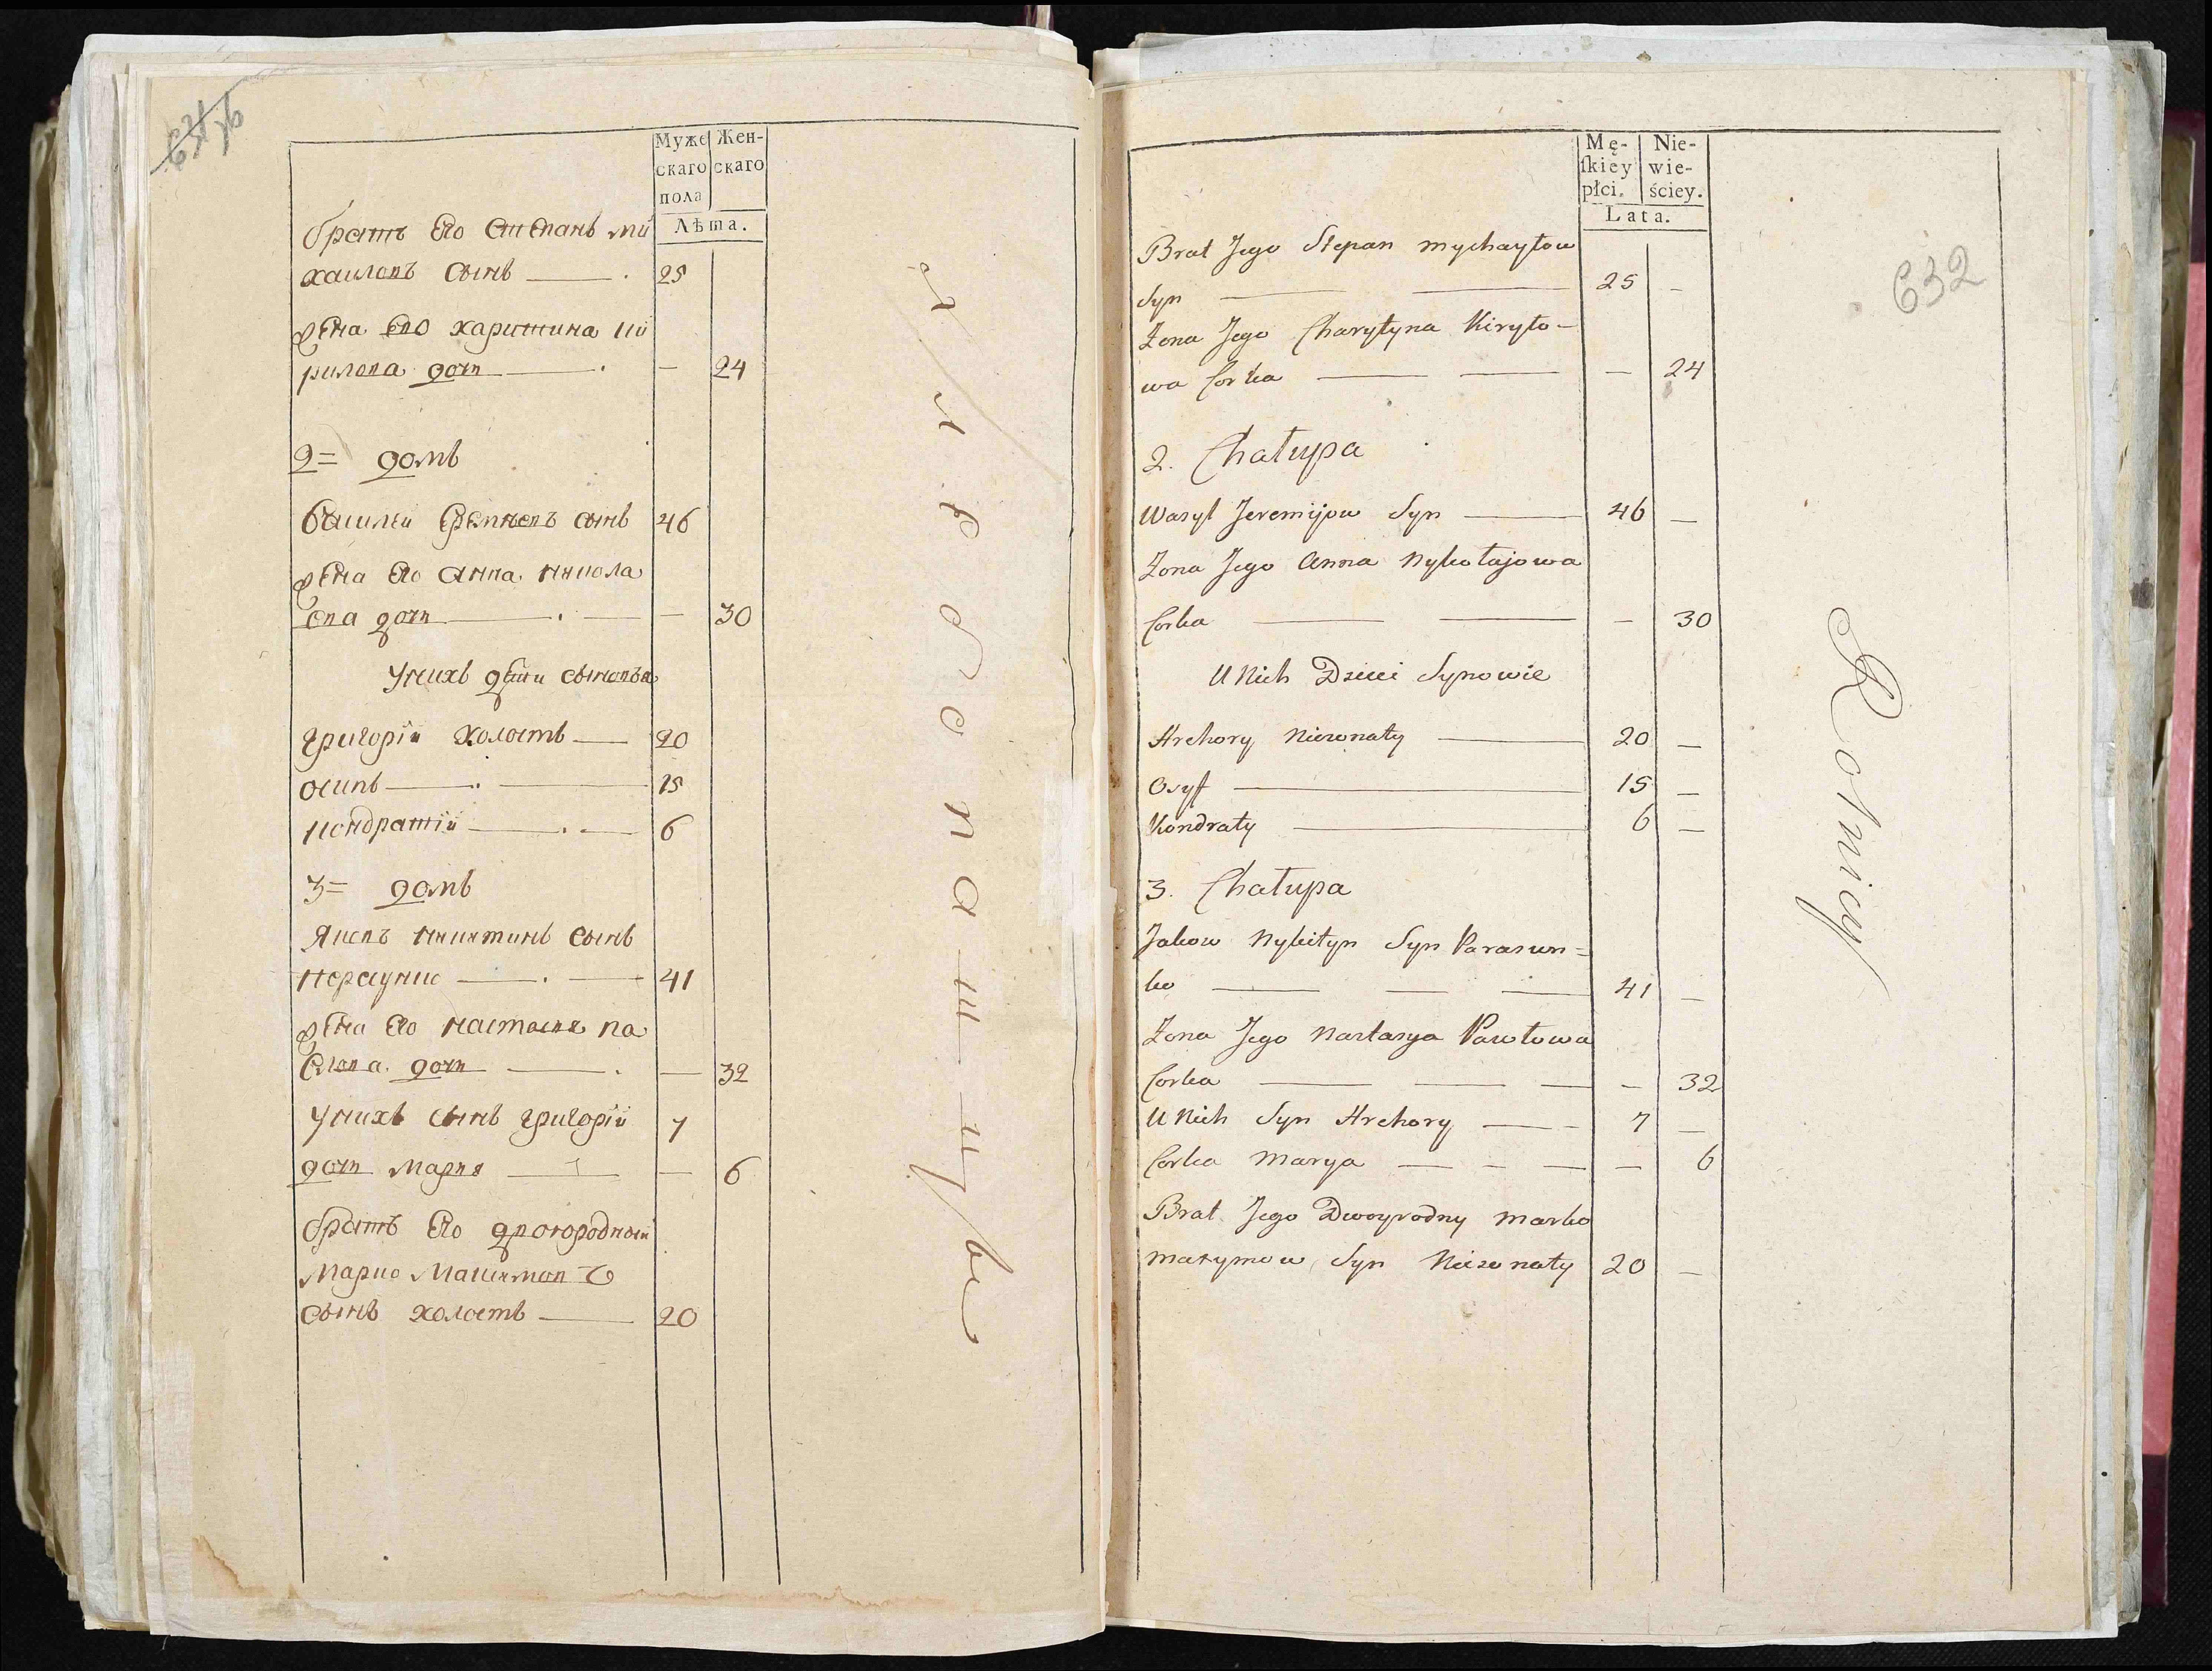 Муже
скаго
пола
Жен-
скаго
Лѣта.
братъ Его Степанъ ми
хаиловъ сынъ — 25
жена Его харитина ки
рилова дочь — — 24
2= домъ
василеи Еремѣевъ сынъ 46
жена Его Анна никола
ева дочь — — 30
У нихъ дѣти сыновья
григоріи холостъ — 20
осипъ — 15
кондратіи — 6
3= домъ
Яковъ никитинъ сынъ
Карсунко — 41
жена Его настасия па
влова дочь — — 32
У нихъ сынъ григоріи 7
дочь мария — — 6
братъ Его двоюродныи
Марко Максимовъ
сынъ холостъ — 20
хлебопашцы
632
Mę-
ſkiey
płci.
Nie-
wie-
ściey.
Lata.
Brat Jego Stepan Mychayłow
Syn — 25 —
Żona Jego Charytyna Kiryło-
wa Corka — — 24
2. Chałupa
Wasyl Jeremijow Syn — 46 —
Żona Jego Anna Nykołajowa
Corka — — 30
U Nich Dzieci Synowie
Hrehory Nieżonaty — 20 —
Osyf — 15 —
Kondraty — 6 —
3. Chałupa
Jakow Nykityn Syn Karasun=
ko — 41 —
Żona Jego Nastasya Pawłowa
Corka — — 32
U Nich Syn Hrehory — 7 —
Corka Marya — — 6
Brat Jego Dwoyrodny Marko
Maxymow Syn Nieżonaty 20 —
Rolnicy